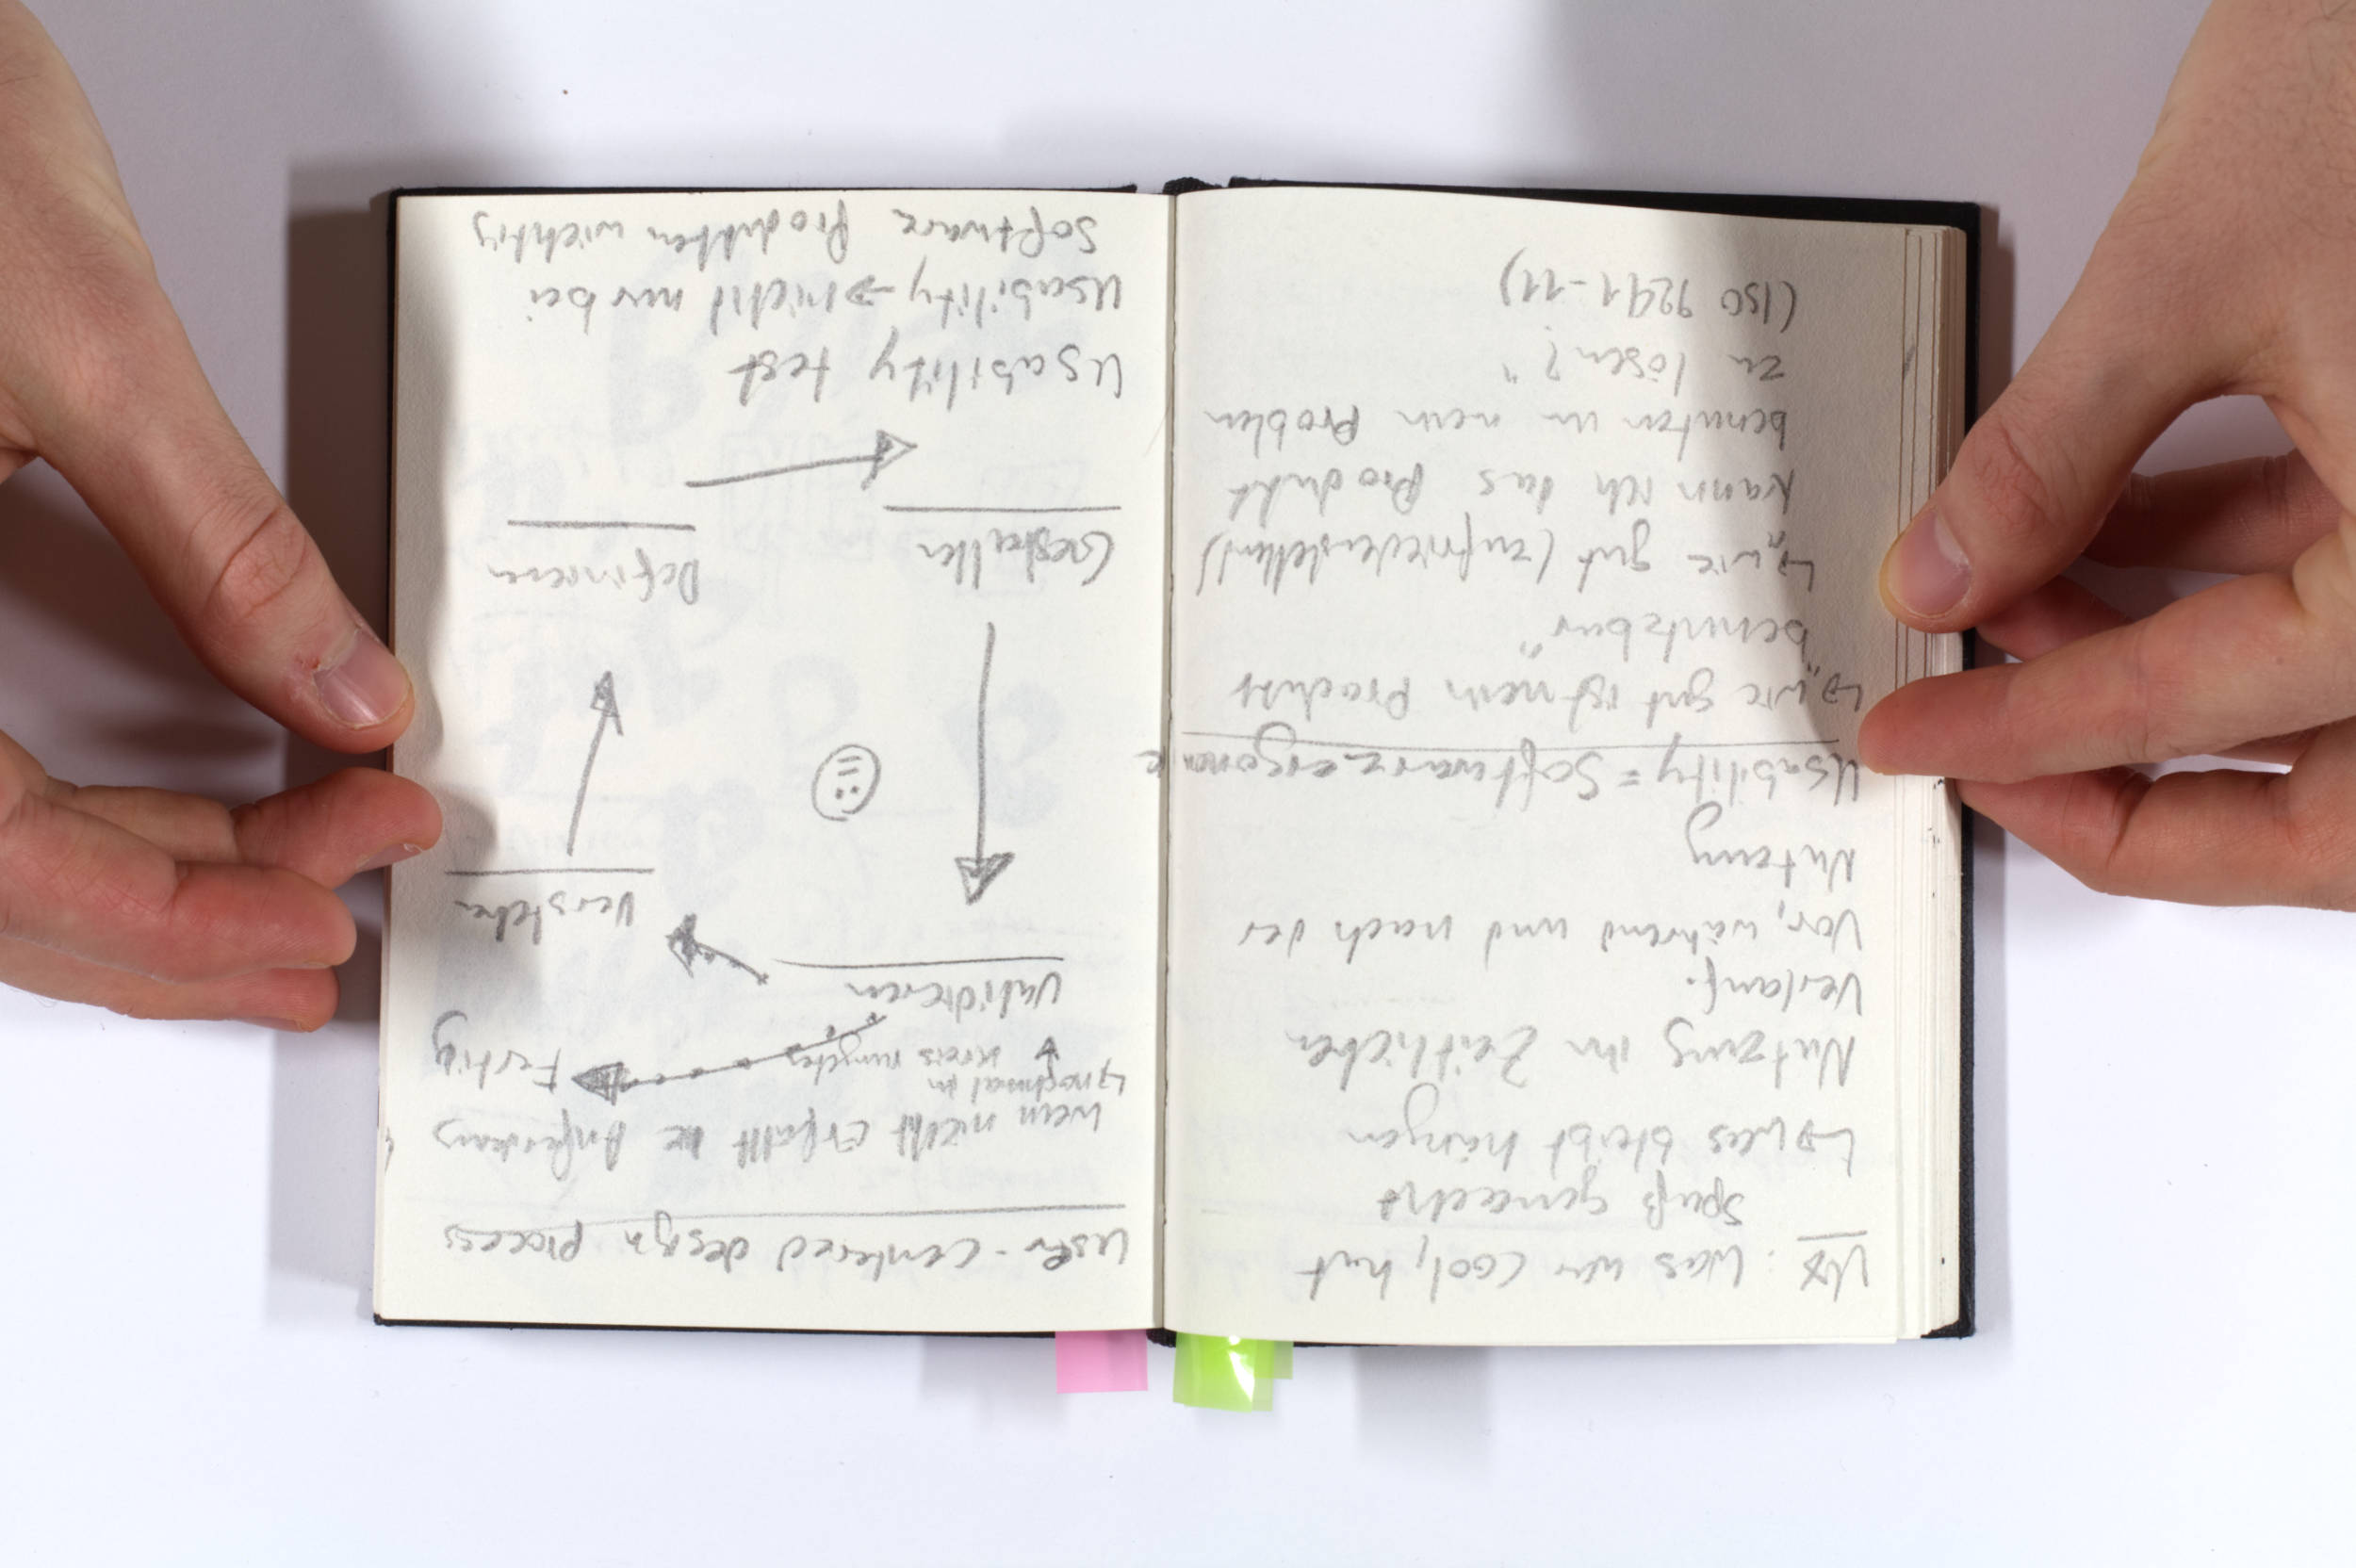 UX: Was war cool, hat
Spaß gemacht
↳ Was bleibt hängen
Nutzung im Zeitlichen
Verlauf.
Vor, während und nach der
Nutzung
Usability = Softwareergonomie
↳ „wie gut ist mein Produkt
benutzbar"
↳ „wie gut (zufriedenstellend)
kann ich das Produkt
benutzen um mein Problem
zu lösen?"
(ISO 9241-11)
User-centered design process
wenn nicht erfüllt
↳ nochmal in
Kreis
Fertig
Validieren
Verstehen
Gestalten
Definieren
Usability test
Usability → nicht nur bei
Software Produkten wichtig